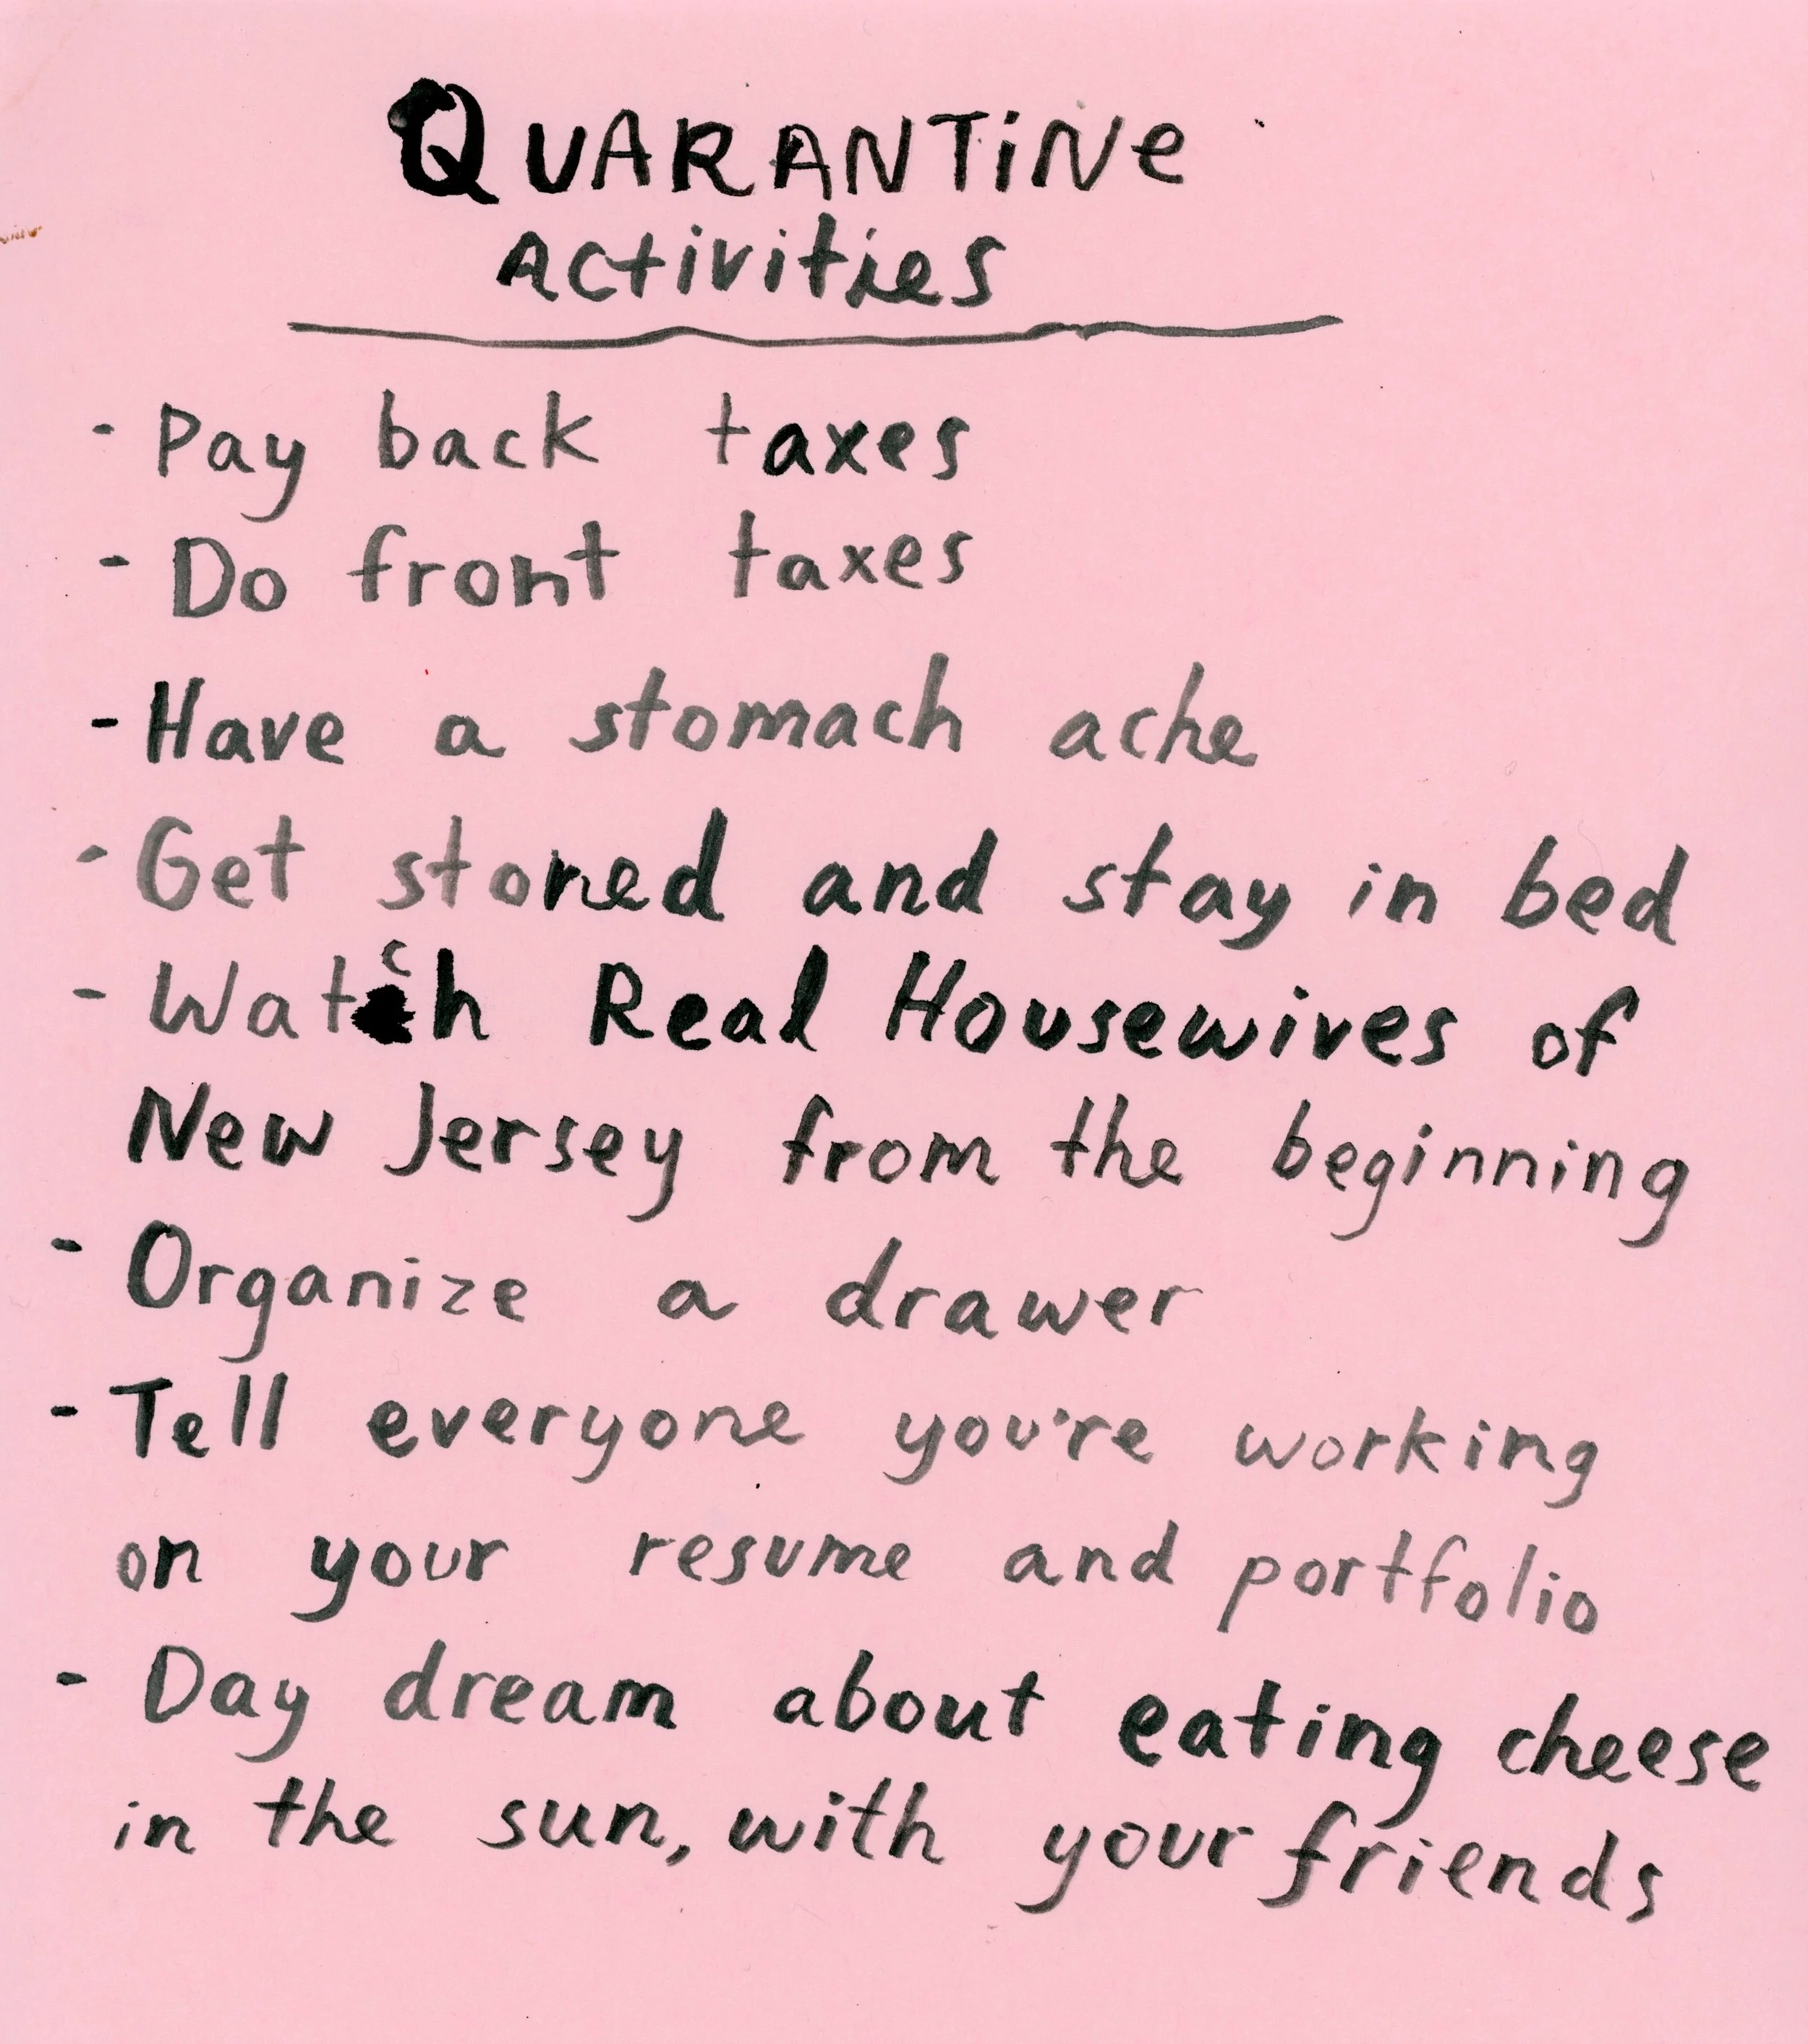 QUARANTiNe
Activities
- Pay back taxes
- Do front taxes
- Have a stomach ache
- Get stoned and stay in bed
- Watch Real Housewives of
New Jersey from the beginning
- Organize a drawer
- Tell everyone you're working
on your resume and portfolio
- Day dream about eating cheese
in the sun, with your friends